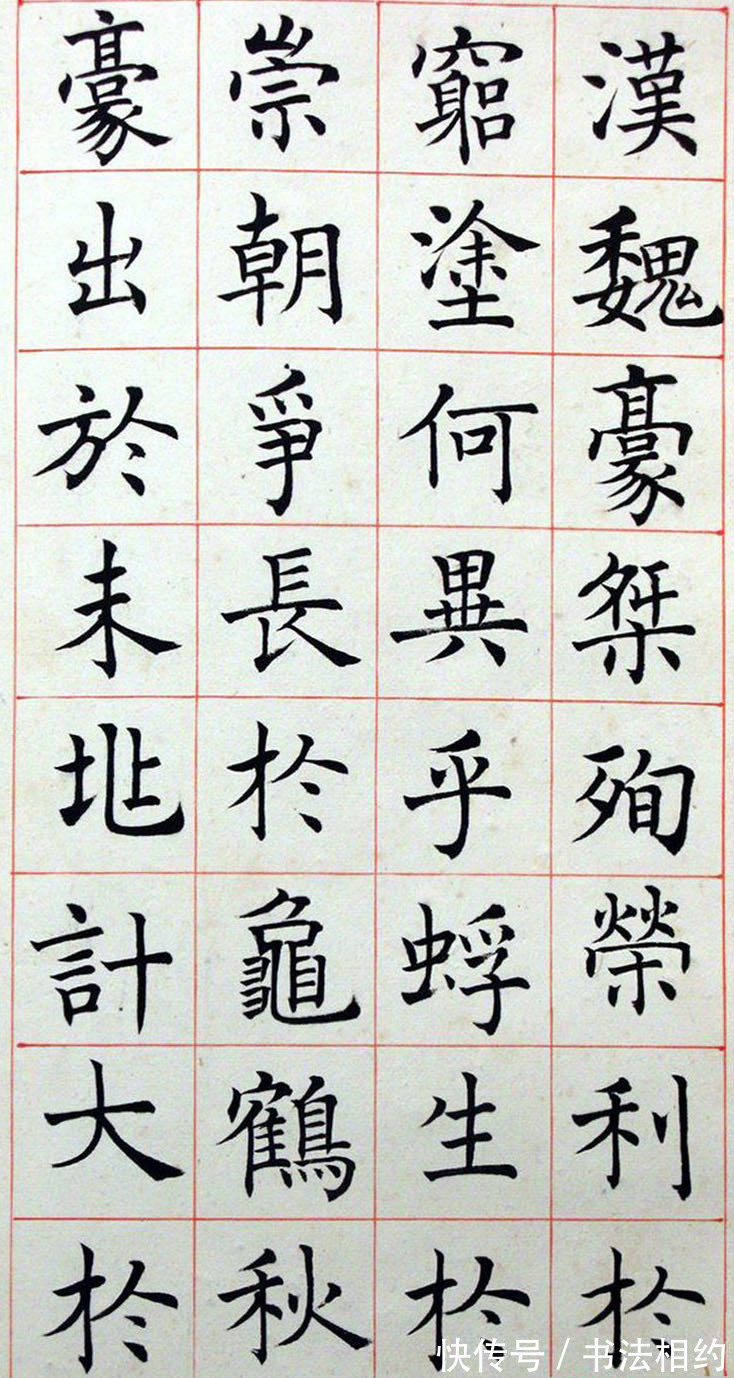 漢魏豪桀殉榮利於
窮塗何異乎蜉生於
崇朝爭長於龜鶴秋
豪出於未計大於
快传号 / 书法相约